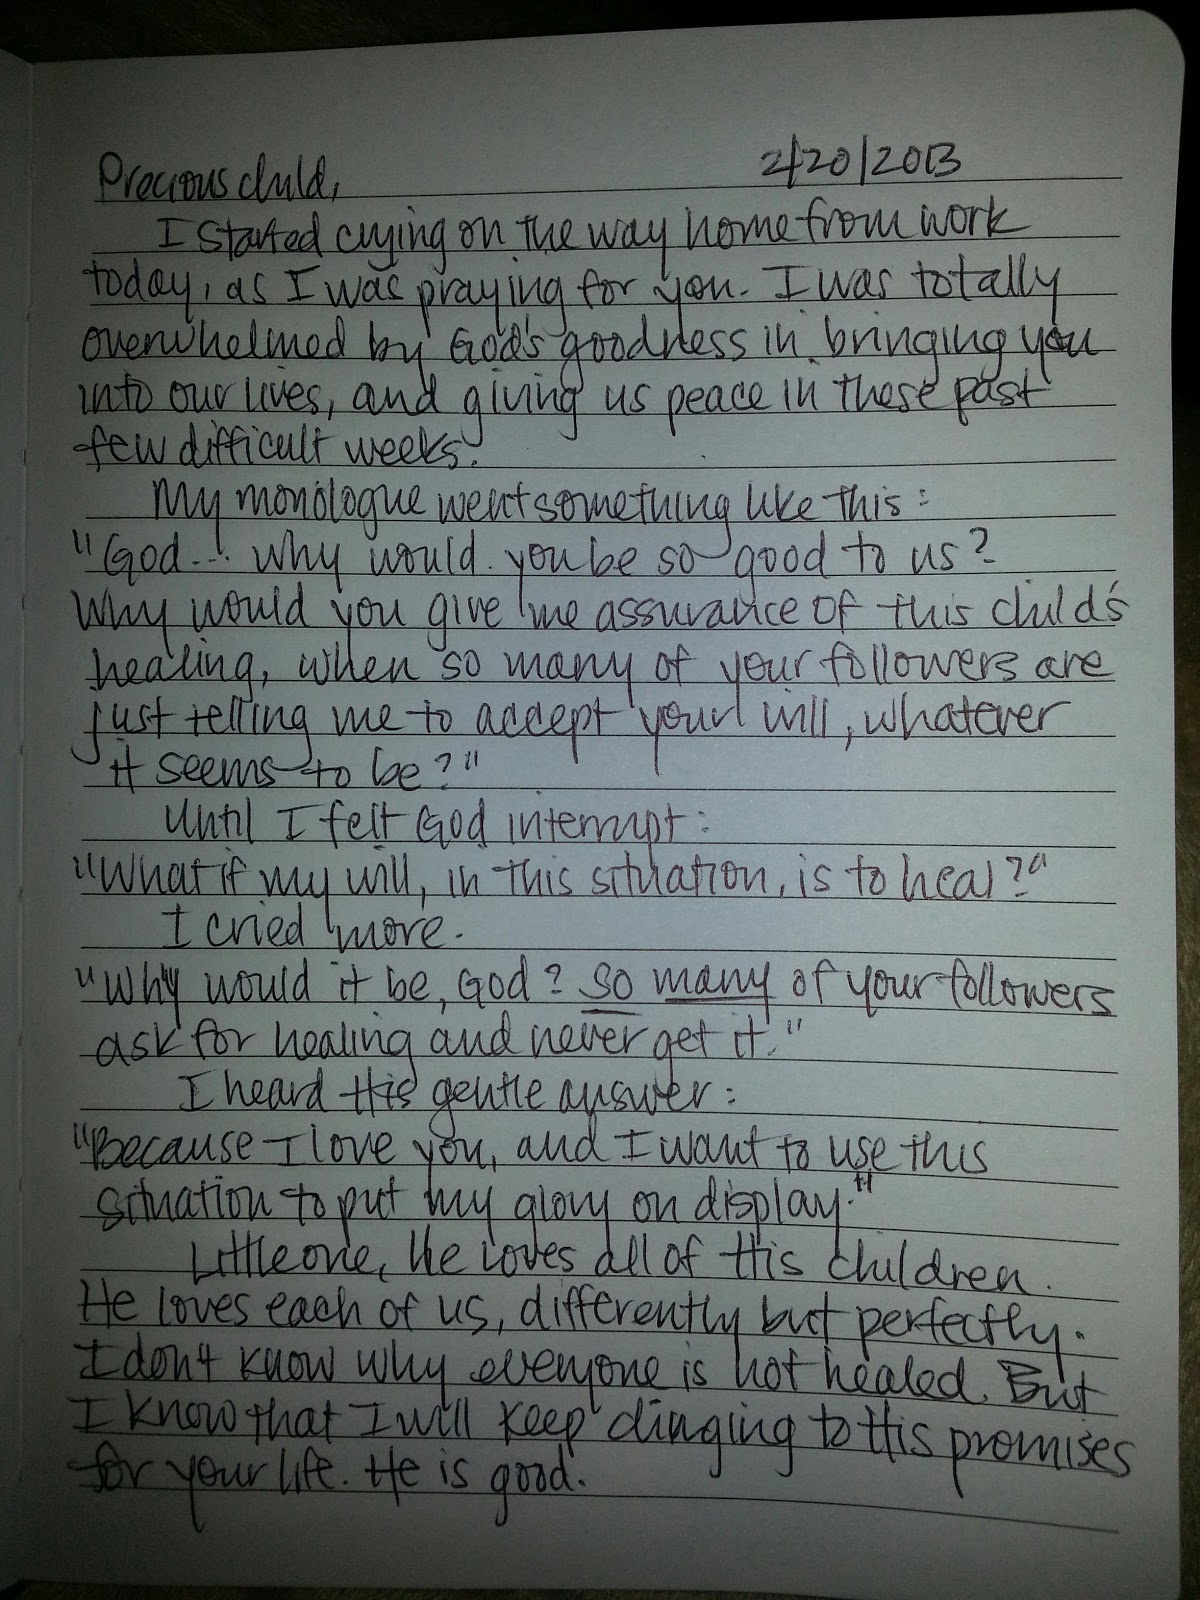 Precious child, 2/20/2013
I started crying on the way home from work
today, as I was praying for you. I was totally
overwhelmed by God's goodness in bringing you
into our lives, and giving us peace in these past
few difficult weeks.
My monologue went something like this:
"God... why would you be so good to us?
Why would you give me assurance of this child's
healing, when so many of your followers are
just telling me to accept your will, whatever
it seems to be?"
Until I felt God interrupt:
"What if my will, in this situation, is to heal?"
I cried more.
"Why would it be, God? So many of your followers
ask for healing and never get it."
I heard His gentle answer:
"Because I love you, and I want to use this
situation to put my glory on display."
Little one, He loves all of His children.
He loves each of us, differently but perfectly.
I don't know why everyone is not healed. But
I know that I will keep clinging to His promises
for your life. He is good.